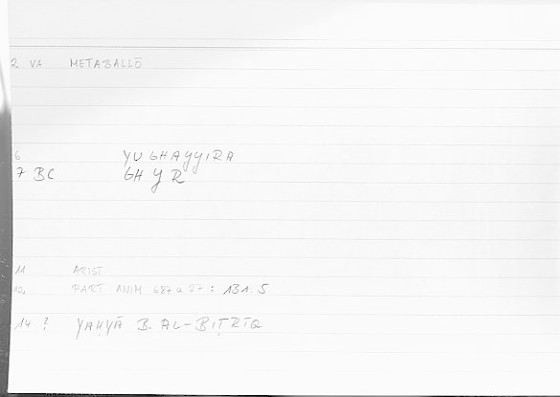 2 VA METABALLŌ
6 YUGHAYYIRA
7 BC GHYR
11 ARIST
12 PART ANIM 687a27 : 131.5
14 ? YAḤYĀ B. AL-BIṬRĪQ